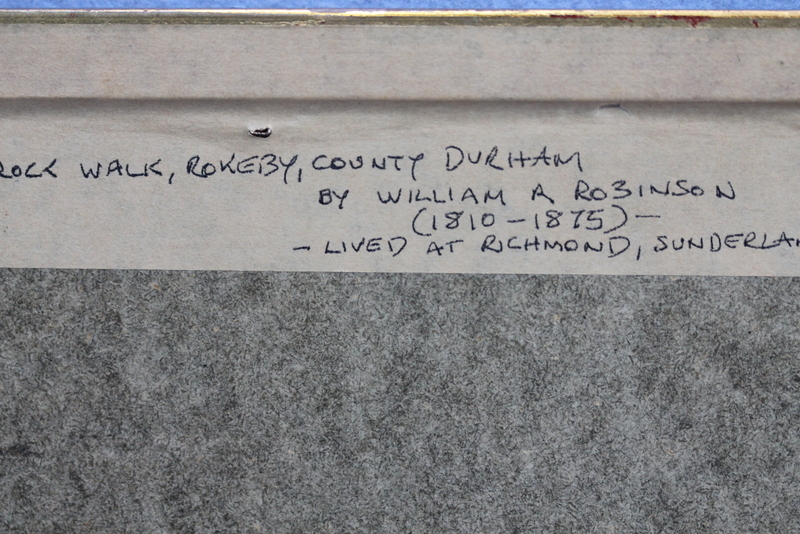 ROCK WALK, ROKEBY, COUNTY DURHAM
BY WILLIAM R ROBINSON
(1810-1875)-
- LIVED AT RICHMOND, SUNDERLA